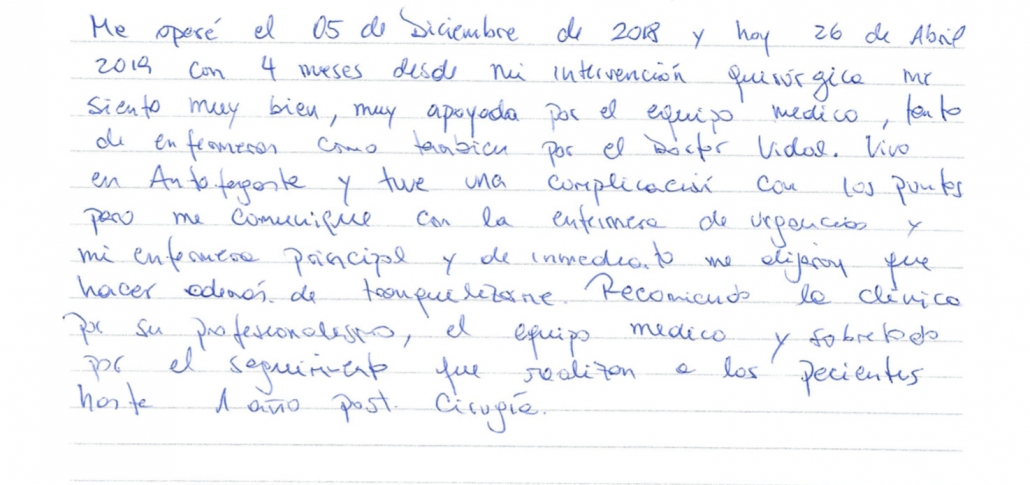 Me operé el 05 de Diciembre de 2018 y hoy 26 de Abril
2019 con 4 meses desde mi intervención quirúrgica me
siento muy bien, muy apoyada por el equipo medico, tanto
de enfermeras como tambien por el Doctor Vidal. Vivo
en Antofagasta y tuve una complicación con los puntos
pero me comunique con la enfermera de urgencias y
mi enfermera principal y de inmediato me dijeron que
hacer además de tranquilizarme. Recomiendo la clínica
por su profesionalismo, el equipo medico y sobretodo
por el seguimiento que realizan a los pacientes
hasta 1 año post. Cirugía.